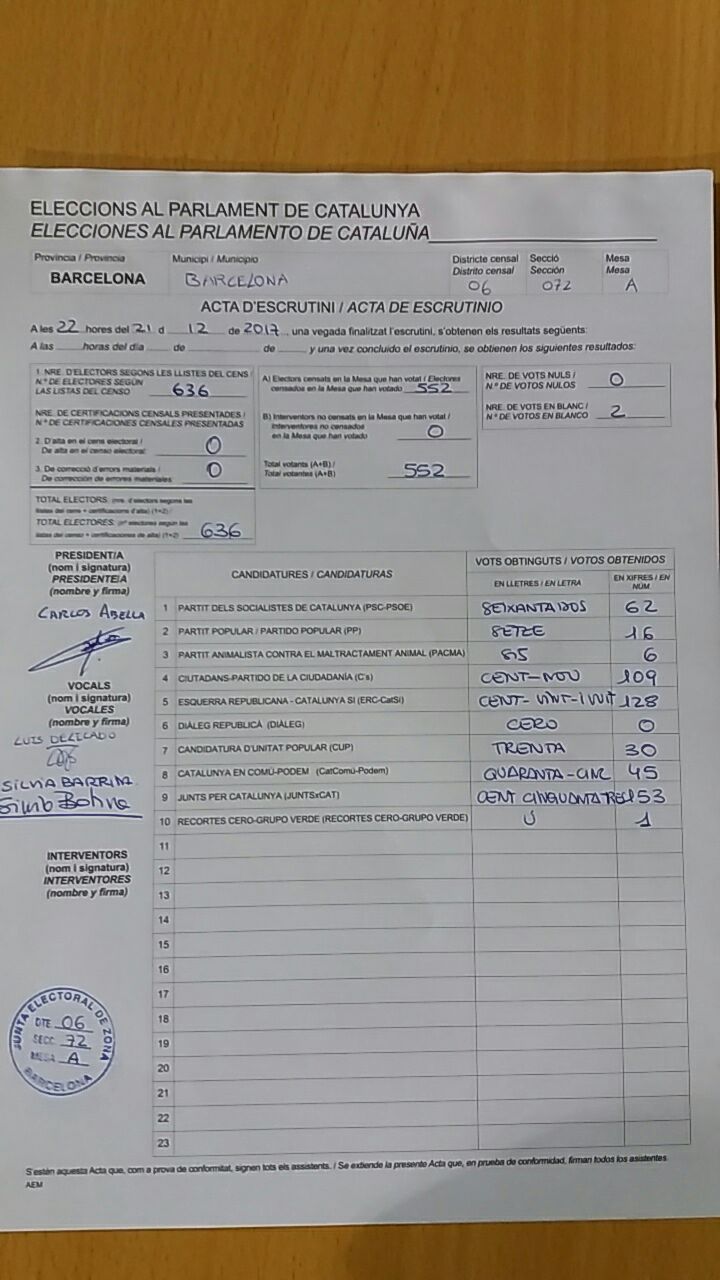 ELECCIONS AL PARLAMENT DE CATALUNYA
ELECCIONES AL PARLAMENTO DE CATALUÑA
Província / Provincia
BARCELONA
Municipi / Municipio
BARCELONA
Districte censal
Distrito censal
06
Secció
Sección
072
Mesa
Mesa
A
ACTA D'ESCRUTINI / ACTA DE ESCRUTINIO
A les 22 hores del 21 d 12 de 2017, una vegada finalitzat l'escrutini, s'obtenen els resultats següents:
A las hores del día de de y una vez concluido el escrutinio, se obtienen los siguientes resultados:
1. NRE. D'ELECTORS SEGONS LES LLISTES DEL CENS /
N.º DE ELECTORES SEGÚN
LAS LISTAS DEL CENSO 636
NRE. DE CERTIFICACIONS CENSALS PRESENTADES /
N.º DE CERTIFICACIONES CENSALES PRESENTADAS
2. D'alta en el cens electoral /
De alta en el censo electoral: 0
3. De correcció d'errors materials /
De corrección de errores materiales: 0
TOTAL ELECTORS: (nre. d'electors segons les
llistes del cens + certificacions d'alta) (1+2) /
TOTAL ELECTORES: (nº electores según las
listas del censo + certificaciones de alta) (1+2) 636
A) Electors censats en la Mesa que han votat / Electores
censados en la Mesa que han votado 552
B) Interventors no censats en la Mesa que han votat /
Interventores no censados
en la Mesa que han votado 0
Total votants (A+B) /
Total votantes (A+B) 552
NRE. DE VOTS NULS /
N.º DE VOTOS NULOS 0
NRE. DE VOTS EN BLANC /
N.º DE VOTOS EN BLANCO 2
PRESIDENT/A
(nom i signatura)
PRESIDENTE/A
(nombre y firma)
CARLOS ABELLA
VOCALS
(nom i signatura)
VOCALES
(nombre y firma)
LUIS DELICADO
SILVIA BARRINA
INTERVENTORS
(nom i signatura)
INTERVENTORES
(nombre y firma)
JUNTA ELECTORAL DE ZONA
DTE. 06
SECC. 72
MESA A
BARCELONA
CANDIDATURES / CANDIDATURAS
VOTS OBTINGUTS / VOTOS OBTENIDOS
EN LLETRES / EN LETRA
EN XIFRES / EN NÚM.
1 PARTIT DELS SOCIALISTES DE CATALUNYA (PSC-PSOE) SEIXANTADOS 62
2 PARTIT POPULAR / PARTIDO POPULAR (PP) SETZE 16
3 PARTIT ANIMALISTA CONTRA EL MALTRACTAMENT ANIMAL (PACMA) SIS 6
4 CIUTADANS-PARTIDO DE LA CIUDADANÍA (C's) CENT-NOU 109
5 ESQUERRA REPUBLICANA - CATALUNYA SÍ (ERC-CatSí) CENT-VINT-I VUIT 128
6 DIÀLEG REPUBLICÀ (DIÀLEG) CERO 0
7 CANDIDATURA D'UNITAT POPULAR (CUP) TRENTA 30
8 CATALUNYA EN COMÚ-PODEM (CatComú-Podem) QUARANTA-CINC 45
9 JUNTS PER CATALUNYA (JUNTSxCAT) CENT CINQUANTA TRES 153
10 RECORTES CERO-GRUPO VERDE (RECORTES CERO-GRUPO VERDE) Ú 1
11
12
13
14
15
16
17
18
19
20
21
22
23
S'estén aquesta Acta que, com a prova de conformitat, signen tots els assistents. / Se extiende la presente Acta que, en prueba de conformidad, firman todos los asistentes.
AEM